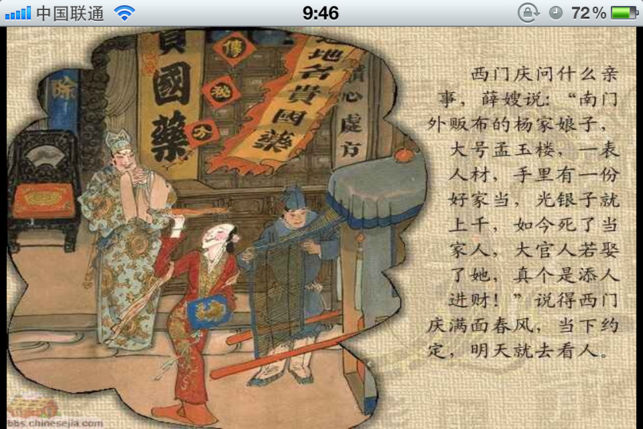 中国联通
9:46
72%
貴國藥
地名貴國藥
傳
心處方
除
西门庆问什么亲
事，薛嫂说：“南门
外贩布的杨家娘子，
大号孟玉楼，一表
人材，手里有一份
好家当，光银子就
上千，如今死了当
家人，大官人若娶
了她，真个是添人
进财！”说得西门
庆满面春风，当下约
定，明天就去看人。
bbs.chinesejia.com